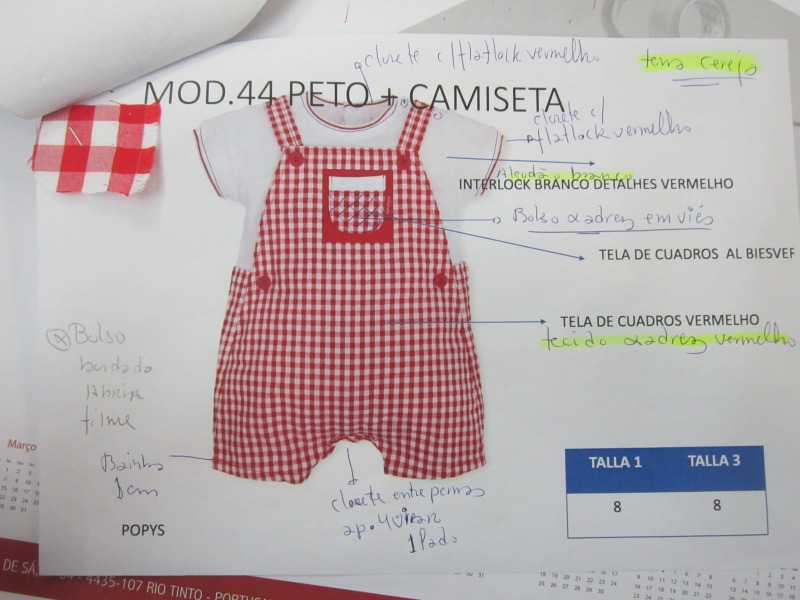 clorete c/flatlock vermelho
tema cereja
MOD.44 PETO + CAMISETA
clorete c/
flatlock vermelho
Algodão branco
INTERLOCK BRANCO DETALHES VERMELHO
Bolso xadrez em viés
TELA DE CUADROS AL BIESVER
TELA DE CUADROS VERMELHO
tecido xadrez vermelho
Bolso
bordado
Abrir
filme
Bainha
1cm
clorete entre pernas
ap. 4 viran
1 lado
POPYS
TALLA 1 TALLA 3
8 8
Março
DE SÁ,
4435-107 RIO TINTO - PORTUGA